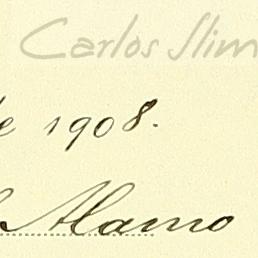 Carlos Slim
de 1908.
Alamo